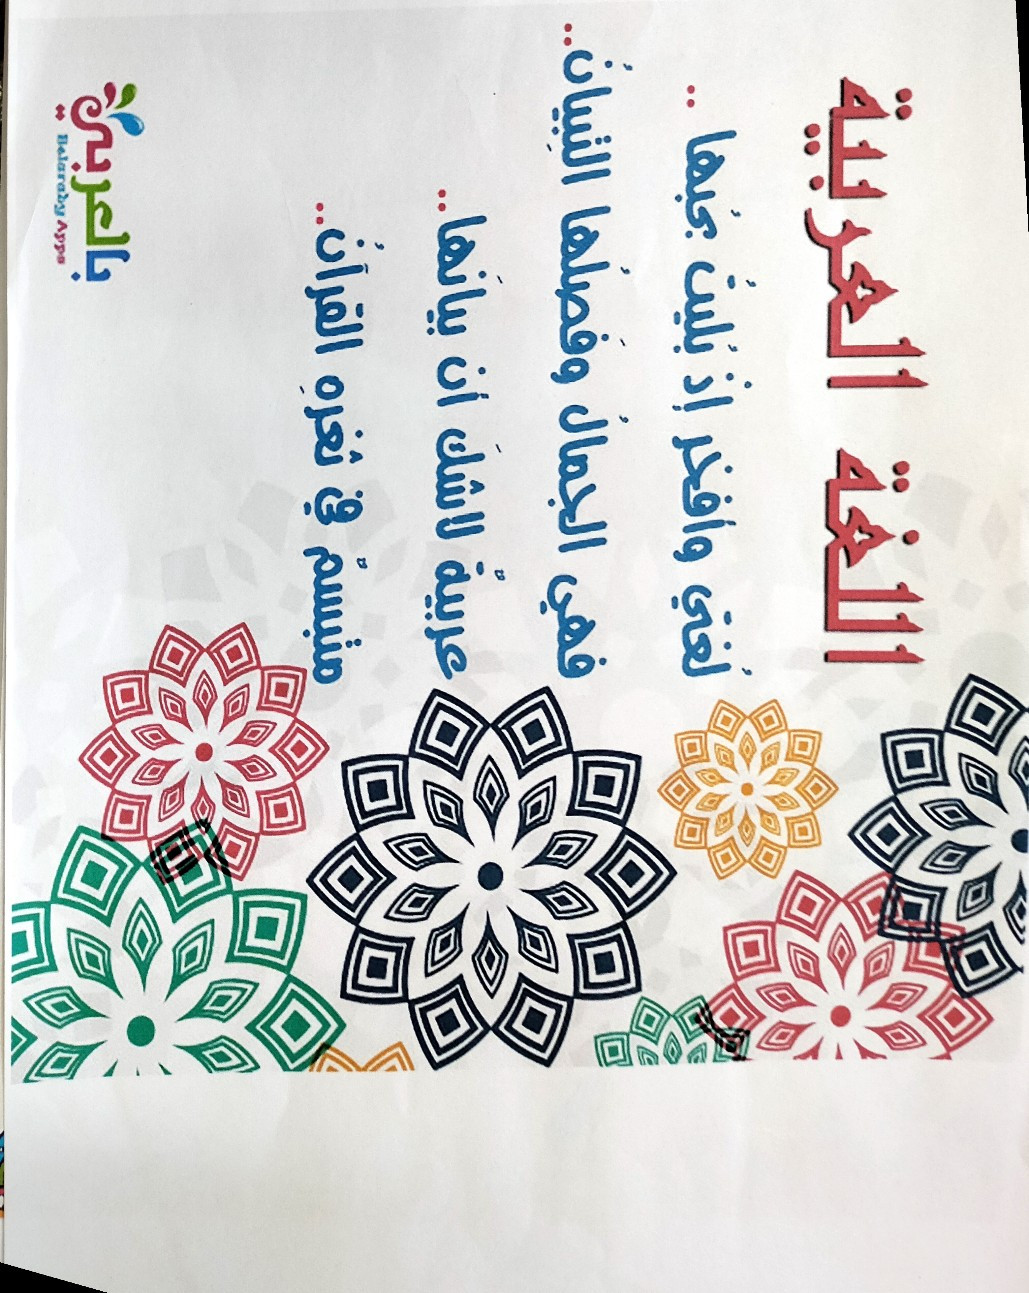 اللغة العربية
لغتي وأفخر إذ بُليتُ بحُبها ..
فهي الجمالُ وفصلُها التبيانُ..
عربيةٌ لاشكَ أن بيانَها..
متبسمٌ في ثغرهِ القرآنُ..
بالعربي
Belaraby Apps